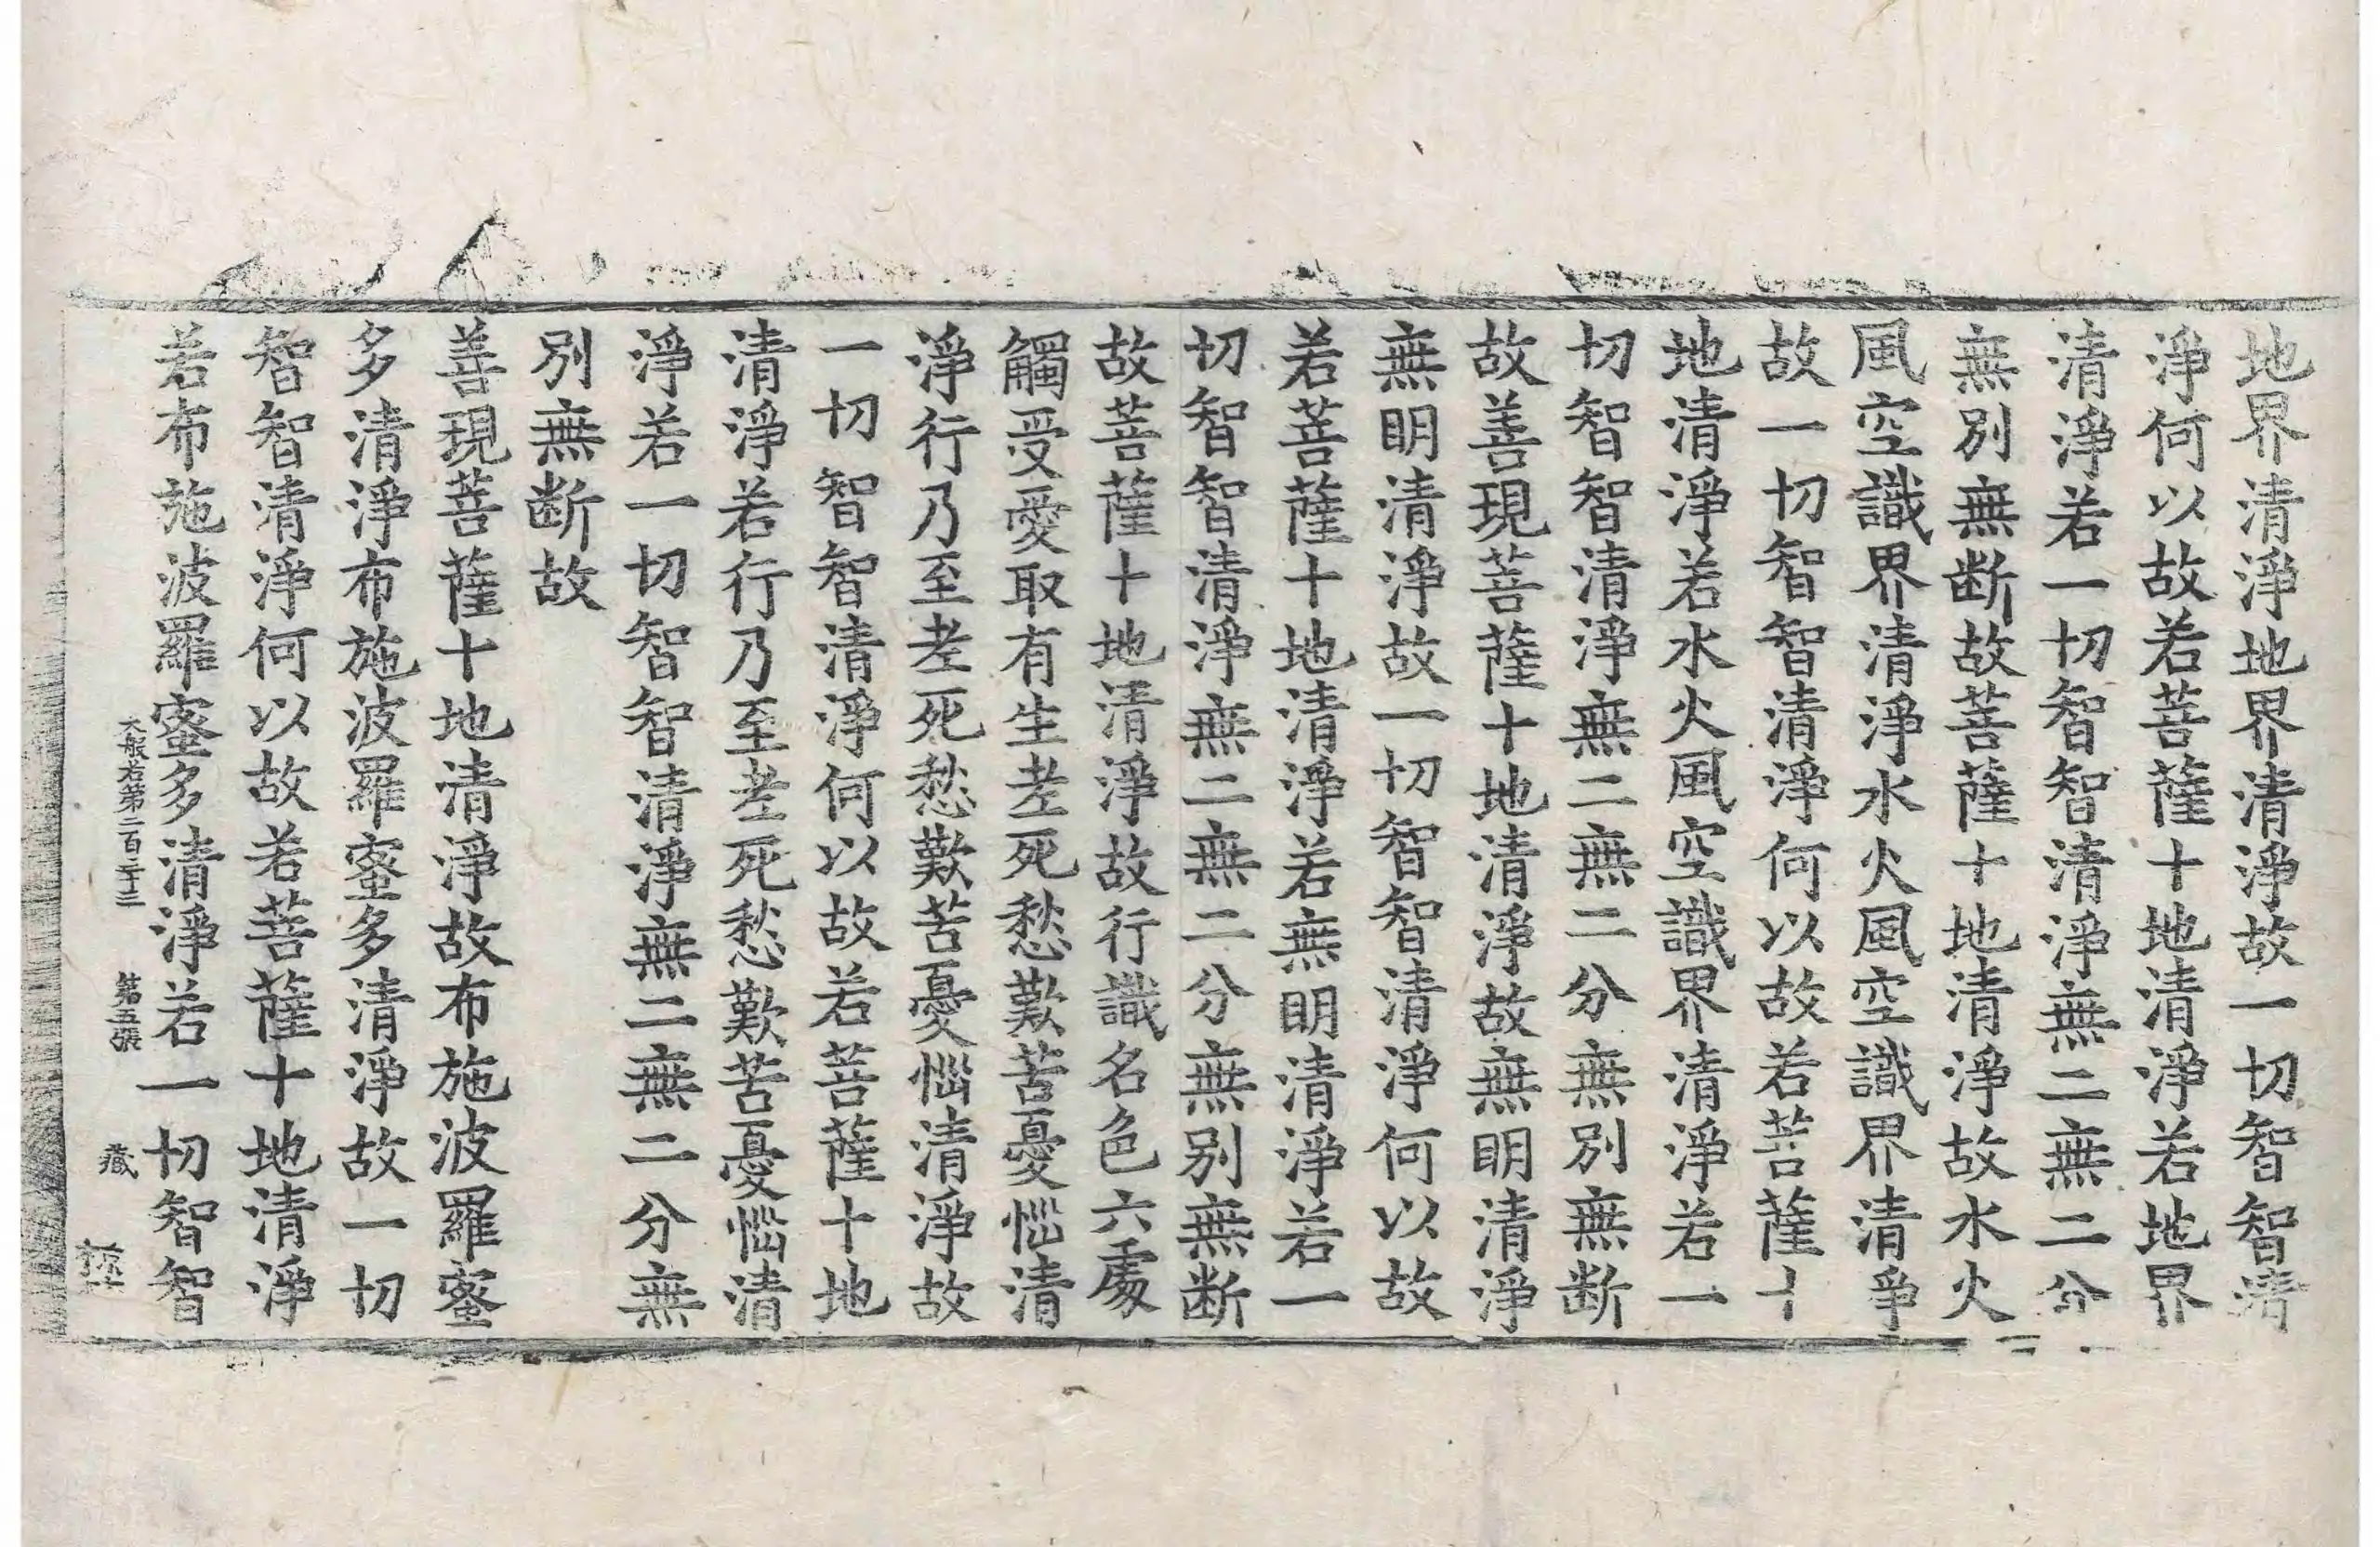 地界清淨地界清淨故一切智智清
淨何以故若菩薩十地清淨若地界
清淨若一切智智清淨無二無二分
無別無断故菩薩十地清淨故水火
風空識界清淨水火風空識界清淨
故一切智智清淨何以故若菩薩十
地清淨若水火風空識界清淨若一
切智智清淨無二無二分無別無断
故善現菩薩十地清淨故無明清淨
無明清淨故一切智智清淨何以故
若菩薩十地清淨若無明清淨若一
切智智清淨無二無二分無別無断
故菩薩十地清淨故行識名色六處
觸受愛取有生老死愁歎苦憂惱清
淨行乃至老死愁歎苦憂惱清淨故
一切智智清淨何以故若菩薩十地
清淨若行乃至老死愁歎苦憂惱清
淨若一切智智清淨無二無二分無
別無断故
善現菩薩十地清淨故布施波羅蜜
多清淨布施波羅蜜多清淨故一切
智智清淨何以故若菩薩十地清淨
若布施波羅蜜多清淨若一切智智
大般若第二百二十三 第五張 藏